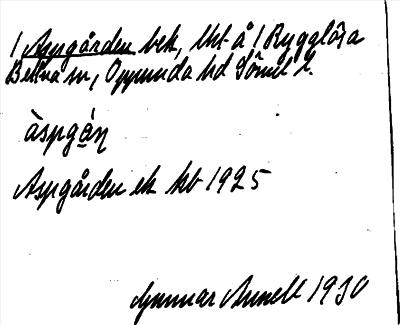 1 Aspgården bek, lht å 1 Rygglösa
Bettna sn, Oppunda hd Söml l.
àspgàn̥
Aspgården ek kb 1925
Gunnar Linell 1930